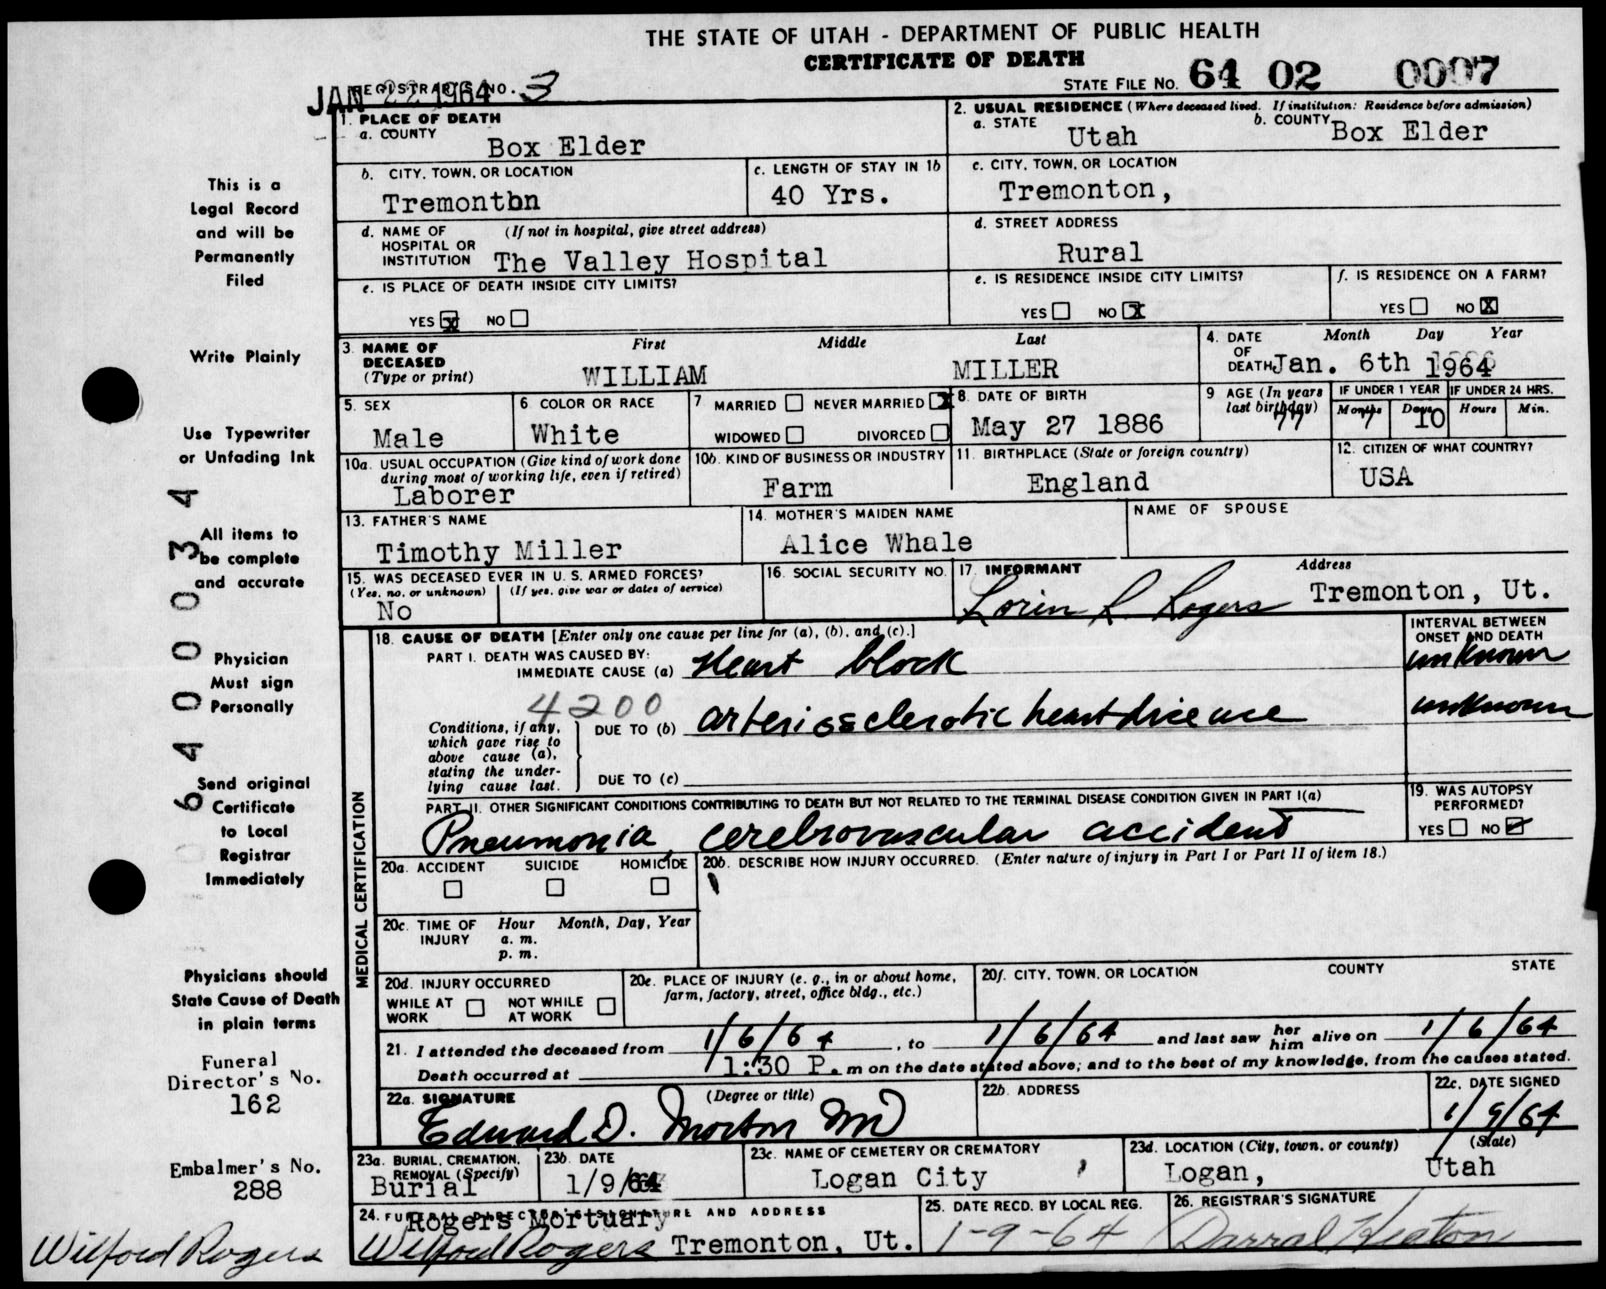 THE STATE OF UTAH - DEPARTMENT OF PUBLIC HEALTH
CERTIFICATE OF DEATH
STATE FILE NO. 64 02 0007
JAN 22 1964
REGISTRAR'S NO. 3
1. PLACE OF DEATH
a. COUNTY
Box Elder
2. USUAL RESIDENCE (Where deceased lived. If institution: Residence before admission)
a. STATE
Utah
b. COUNTY
Box Elder
b. CITY, TOWN, OR LOCATION
Tremonton
c. LENGTH OF STAY IN 1b
40 Yrs.
c. CITY, TOWN, OR LOCATION
Tremonton,
d. NAME OF HOSPITAL OR INSTITUTION
(If not in hospital, give street address)
The Valley Hospital
d. STREET ADDRESS
Rural
e. IS PLACE OF DEATH INSIDE CITY LIMITS?
YES X NO
e. IS RESIDENCE INSIDE CITY LIMITS?
YES NO X
f. IS RESIDENCE ON A FARM?
YES NO X
3. NAME OF DECEASED
(Type or print)
First Middle Last
WILLIAM MILLER
4. DATE OF DEATH
Month Day Year
Jan. 6th 1964
5. SEX
Male
6. COLOR OR RACE
White
7 MARRIED NEVER MARRIED X
WIDOWED DIVORCED
8. DATE OF BIRTH
May 27 1886
9 AGE (In years last birthday)
77
IF UNDER 1 YEAR
Months Days
7 10
IF UNDER 24 HRS.
Hours Min.
10a. USUAL OCCUPATION (Give kind of work done during most of working life, even if retired)
Laborer
10b. KIND OF BUSINESS OR INDUSTRY
Farm
11. BIRTHPLACE (State or foreign country)
England
12. CITIZEN OF WHAT COUNTRY?
USA
13. FATHER'S NAME
Timothy Miller
14. MOTHER'S MAIDEN NAME
Alice Whale
NAME OF SPOUSE
15. WAS DECEASED EVER IN U.S. ARMED FORCES?
(Yes, no, or unknown) (If yes, give war or dates of service)
No
16. SOCIAL SECURITY NO.
17. INFORMANT
Address
Loren L. Rogers Tremonton, Ut.
MEDICAL CERTIFICATION
18. CAUSE OF DEATH [Enter only one cause per line for (a), (b), and (c).]
INTERVAL BETWEEN ONSET AND DEATH
PART I. DEATH WAS CAUSED BY:
IMMEDIATE CAUSE (a) Heart block
unknown
4200
Conditions, if any, which gave rise to above cause (a), stating the underlying cause last.
DUE TO (b) arteriosclerotic heart disease
unknown
DUE TO (c)
PART II. OTHER SIGNIFICANT CONDITIONS CONTRIBUTING TO DEATH BUT NOT RELATED TO THE TERMINAL DISEASE CONDITION GIVEN IN PART I(a)
Pneumonia, cerebrovascular accident
19. WAS AUTOPSY PERFORMED?
YES NO
20a. ACCIDENT SUICIDE HOMICIDE
20b. DESCRIBE HOW INJURY OCCURRED. (Enter nature of injury in Part I or Part II of item 18.)
20c. TIME OF INJURY
Hour Month, Day, Year
a. m.
p. m.
20d. INJURY OCCURRED
WHILE AT WORK NOT WHILE AT WORK
20e. PLACE OF INJURY (e. g., in or about home, farm, factory, street, office bldg., etc.)
20f. CITY, TOWN, OR LOCATION COUNTY STATE
21. I attended the deceased from 1/6/64, to 1/6/64 and last saw her him alive on 1/6/64
Death occurred at 1:30 P. m on the date stated above; and to the best of my knowledge, from the causes stated.
22a. SIGNATURE (Degree or title)
Edward D. Morton MD
22b. ADDRESS
22c. DATE SIGNED
1/9/64
23a. BURIAL, CREMATION, REMOVAL (Specify)
Burial
23b. DATE
1/9/64
23c. NAME OF CEMETERY OR CREMATORY
Logan City
23d. LOCATION (City, town, or county) (State)
Logan, Utah
24. FUNERAL DIRECTOR'S SIGNATURE AND ADDRESS
Rogers Mortuary
Wilford Rogers Tremonton, Ut.
25. DATE RECD. BY LOCAL REG.
1-9-64
26. REGISTRAR'S SIGNATURE
Darral Heaton
This is a
Legal Record
and will be
Permanently
Filed
Write Plainly
Use Typewriter
or Unfading Ink
All items to
be complete
and accurate
Physician
Must sign
Personally
Send original
Certificate
to Local
Registrar
Immediately
Physicians should
State Cause of Death
in plain terms
Funeral
Director's No.
162
Embalmer's No.
288
Wilford Rogers